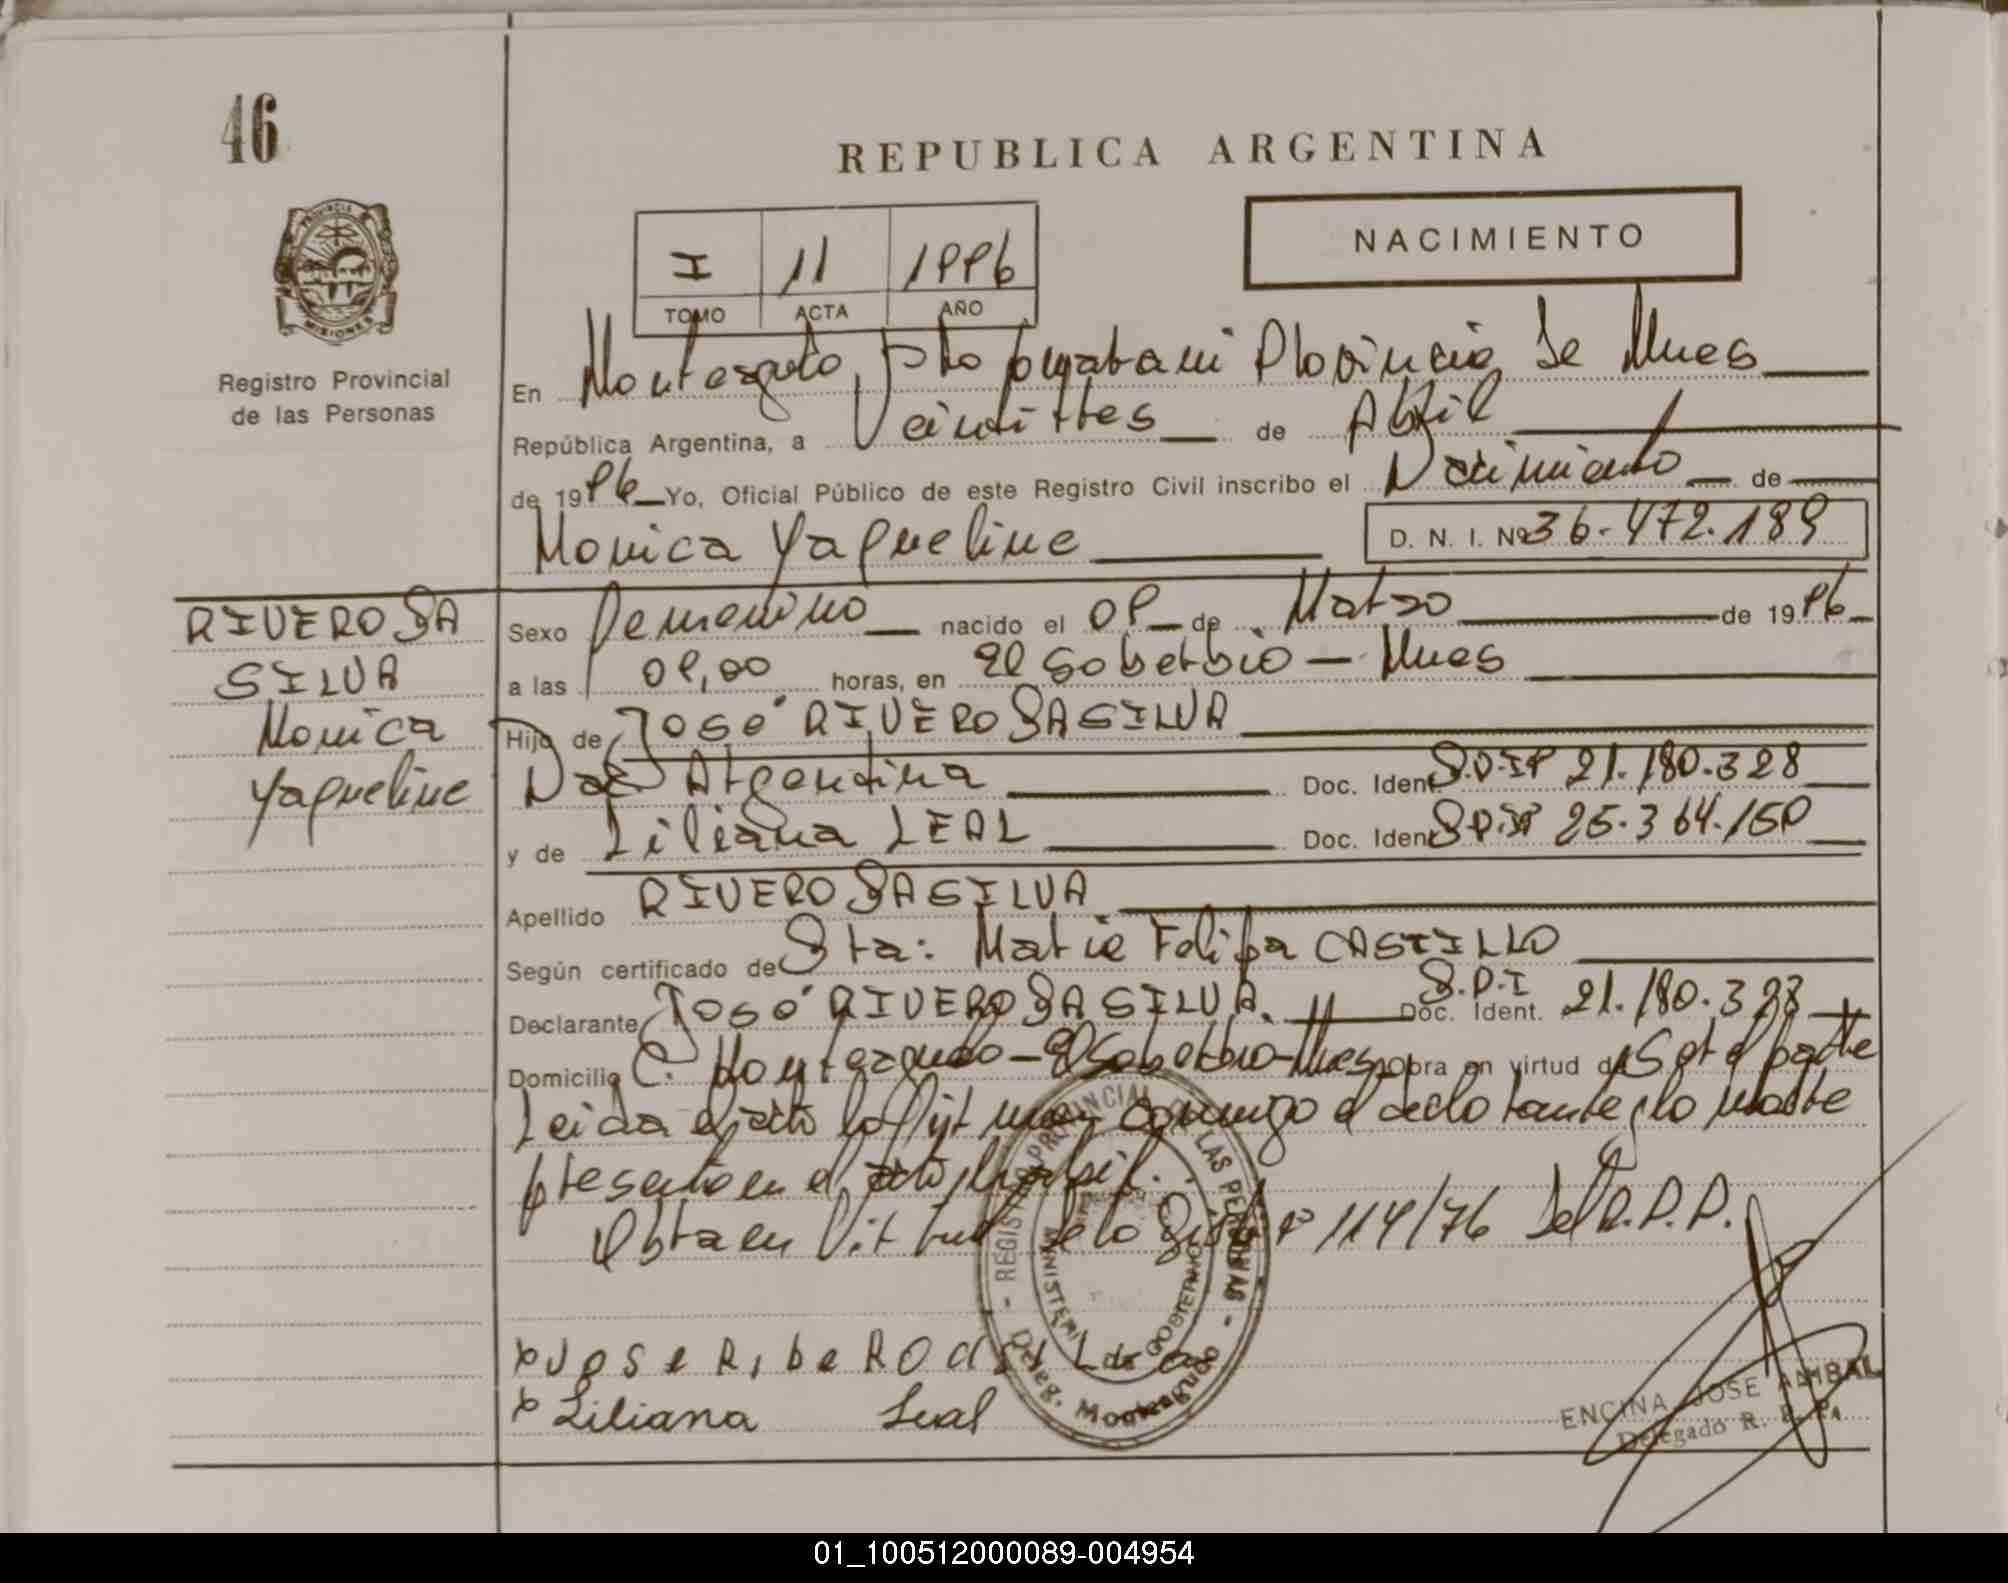 46
REPUBLICA ARGENTINA
NACIMIENTO
I 11 1996
TOMO ACTA AÑO
PROVINCIA
MISIONES
Registro Provincial
de las Personas
En Monteagudo, Dto Guarani Provincia de Mnes
República Argentina, a Veintitres de Abril
de 1996 Yo, Oficial Público de este Registro Civil inscribo el Nacimiento de
Monica Yaqueline D. N. I. Nº 36-472.189
RIVERO DA
SILVA
Monica
Yaqueline
Sexo Femenino nacido el 09 de Marzo de 1996
a las 09,00 horas, en El Soberbio - Mnes
Hijo de José RIVERO DA SILVA
Nac Argentina Doc. Ident 21.180.328
y de Liliana LEAL Doc. Ident 25.364.150
Apellido RIVERO DA SILVA
Según certificado de Sta: Maria Felipa CASTILLO
Declarante José RIVERO DA SILVA. Doc. Ident. D.P.I 21.180.328
Domicilio C. Monteagudo - El Soberbio - Mnes obra en virtud de Ser el padre
Leida el acta la firman conmigo el declarante y la madre
presente en el acto
Obra en Virtud de la Disp. Nº 114/76 Del R.P.P.
x Jose RibeRO da
x Liliana Leal
REGISTRO PROVINCIAL DE LAS PERSONAS
MINISTERIO GOBIERNO
Deleg. Monteagudo
ENCINA JOSE ANIBAL
Delegado R. P. P.
01_100512000089-004954